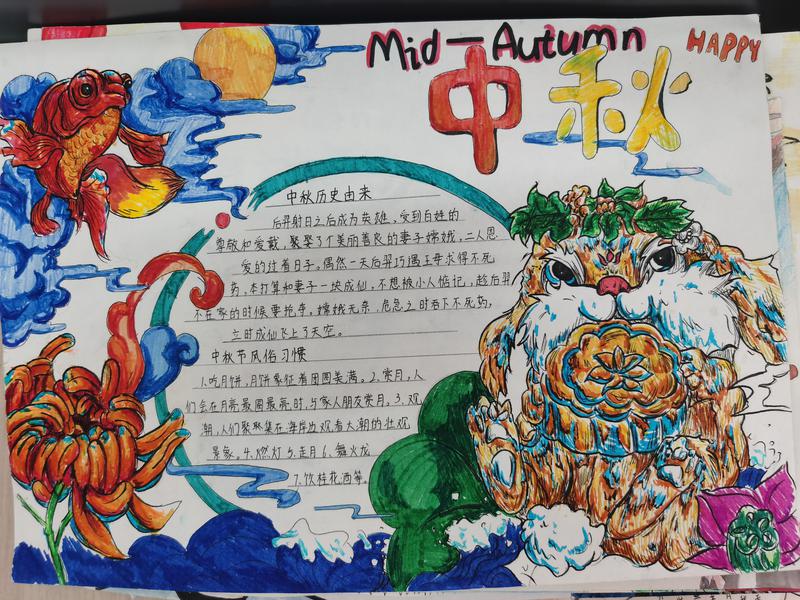 Mid-Autumn
HAPPY
中秋
中秋历史由来
后羿射日之后成为英雄,受到百姓的
尊敬和爱戴,聚娶了个美丽善良的妻子嫦娥,二人恩
爱的过着日子。偶然一天后羿巧遇王母求得不死
药,本打算和妻子一块成仙,不想被小人惦记,趁后羿
不在家的时候要抢夺,嫦娥无奈,危急之时吞下不死药,
立时成仙飞上了天空。
中秋节风俗习惯
1.吃月饼,月饼象征着团圆美满。2.赏月,人
们会在月亮最圆最亮时,与家人朋友赏月。3.观
潮,人们聚集在海岸边观看大潮的壮观
景象。4.燃灯 5.走月 6.舞火龙
7.饮桂花酒等。